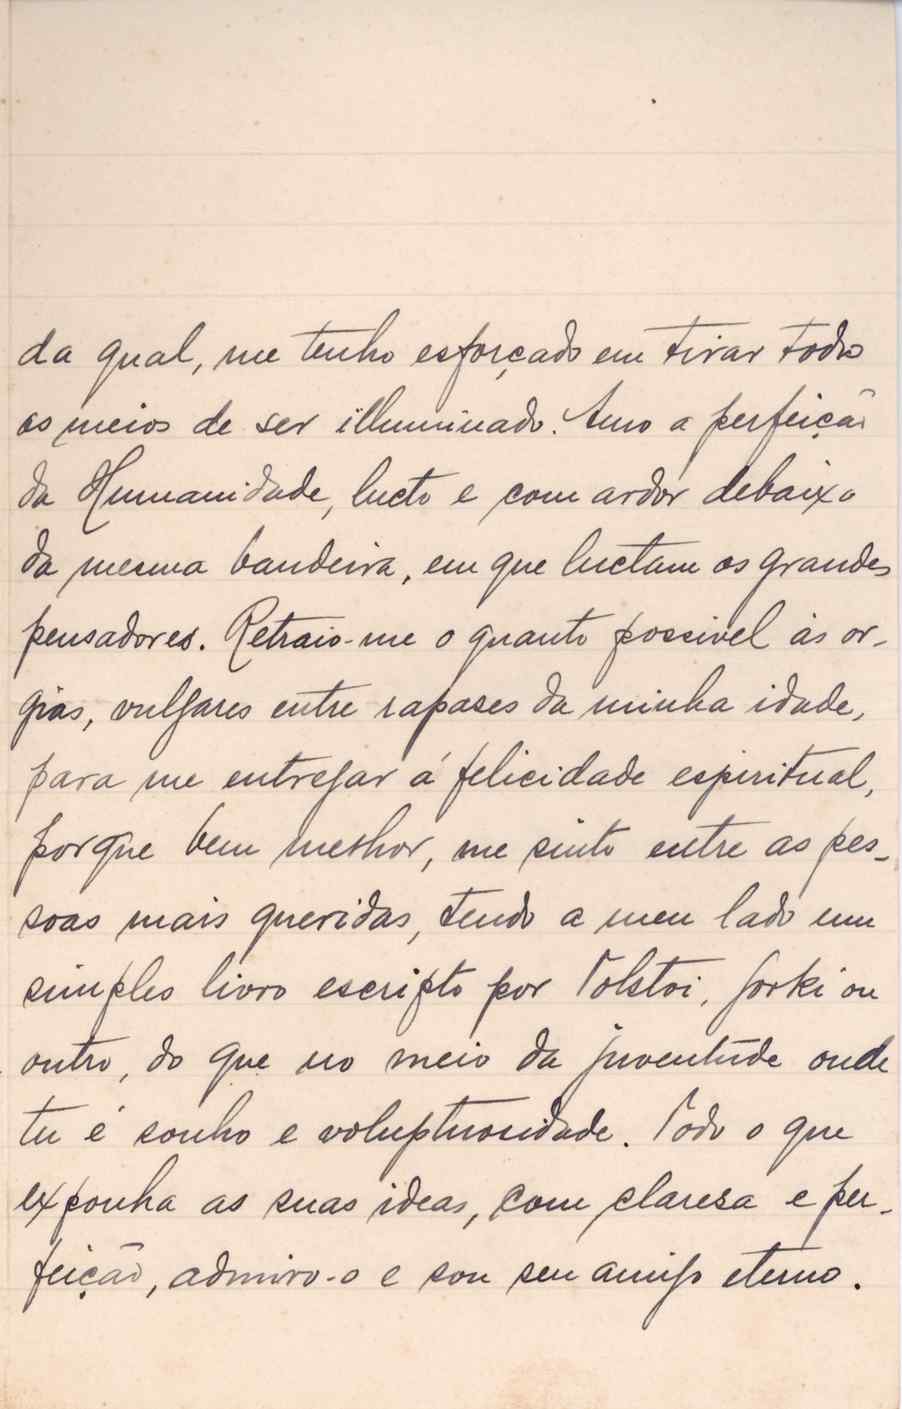 da qual, me tenho esforçado em tirar todos
os meios de ser illuminado. Amo a perfeição
da Humanidade, lucto e com ardor debaixo
da mesma bandeira, em que luctam os grandes
pensadores. Retraio-me o quanto possivel ás or-
gias, vulgares entre rapases da minha idade,
para me entregar á felicidade espiritual,
porque bem melhor, me sinto entre as pes-
soas mais queridas, tendo a meu lado um
simples livro escripto por Tolstoi, Gorki ou
outro, do que no meio da juventude onde
tu é sonho e voluptuosidade. Todo o que
exponha as suas ideas, com claresa e per-
feição, admiro-o e sou seu amigo eterno.